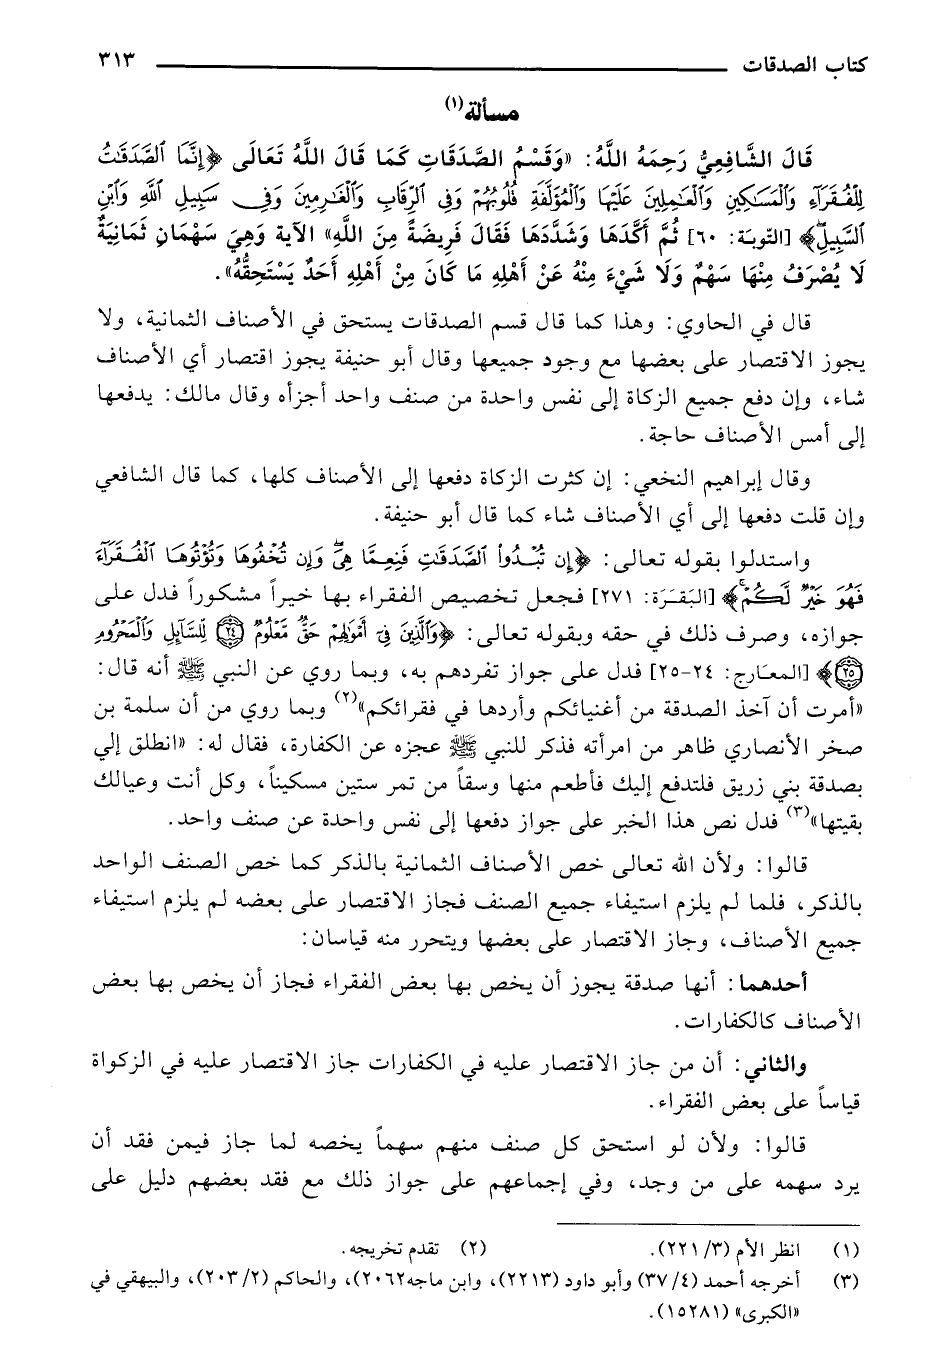 كتاب الصدقات ٣١٣
مسألة(١)
قَالَ الشَّافِعِيُّ رَحِمَهُ اللَّهُ: «وَقَسْمُ الصَّدَقَاتِ كَمَا قَالَ اللَّهُ تَعَالَى ﴿إِنَّمَا الصَّدَقَٰتُ
لِلْفُقَرَآءِ وَالْمَسَٰكِينِ وَالْعَٰمِلِينَ عَلَيْهَا وَالْمُؤَلَّفَةِ قُلُوبُهُمْ وَفِى الرِّقَابِ وَالْغَٰرِمِينَ وَفِى سَبِيلِ اللَّهِ وَابْنِ
السَّبِيلِ﴾ [التّوبَة: ٦٠] ثُمَّ أَكَّدَهَا وَشَدَّدَهَا فَقَالَ فَرِيضَةً مِنَ اللَّهِ» الآية وَهِيَ سَهْمَانِ ثَمَانِيَةٌ
لَا يُصْرَفُ مِنْهَا سَهْمٌ وَلَا شَيْءَ مِنْهُ عَنْ أَهْلِهِ مَا كَانَ مِنْ أَهْلِهِ أَحَدٌ يَسْتَحِقُّهُ».
قال في الحاوي: وهذا كما قال قسم الصدقات يستحق في الأصناف الثمانية، ولا
يجوز الاقتصار على بعضها مع وجود جميعها وقال أبو حنيفة يجوز اقتصار أي الأصناف
شاء، وإن دفع جميع الزكاة إلى نفس واحدة من صنف واحد أجزأه وقال مالك: يدفعها
إلى أمس الأصناف حاجة.
وقال إبراهيم النخعي: إن كثرت الزكاة دفعها إلى الأصناف كلها، كما قال الشافعي
وإن قلت دفعها إلى أي الأصناف شاء كما قال أبو حنيفة.
واستدلوا بقوله تعالى: ﴿إِن تُبْدُوا الصَّدَقَٰتِ فَنِعِمَّا هِىَ وَإِن تُخْفُوهَا وَتُؤْتُوهَا الْفُقَرَآءَ
فَهُوَ خَيْرٌ لَّكُمْ﴾ [البَقَرَة: ٢٧١] فجعل تخصيص الفقراء بها خيراً مشكوراً فدل على
جوازه، وصرف ذلك في حقه وبقوله تعالى: ﴿وَالَّذِينَ فِىٓ أَمْوَٰلِهِمْ حَقٌّ مَّعْلُومٌ ٢٤ لِّلسَّآئِلِ وَالْمَحْرُومِ
٢٥﴾ [المعَارج: ٢٤-٢٥] فدل على جواز تفردهم به، وبما روي عن النبي ﷺ أنه قال:
«أمرت أن آخذ الصدقة من أغنيائكم وأردها في فقرائكم»(٢) وبما روي من أن سلمة بن
صخر الأنصاري ظاهر من امرأته فذكر للنبي ﷺ عجزه عن الكفارة، فقال له: «انطلق إلي
بصدقة بني زريق فلتدفع إليك فأطعم منها وسقاً من تمر ستين مسكيناً، وكل أنت وعيالك
بقيتها»(٣) فدل نص هذا الخبر على جواز دفعها إلى نفس واحدة عن صنف واحد.
قالوا: ولأن الله تعالى خص الأصناف الثمانية بالذكر كما خص الصنف الواحد
بالذكر، فلما لم يلزم استيفاء جميع الصنف فجاز الاقتصار على بعضه لم يلزم استيفاء
جميع الأصناف، وجاز الاقتصار على بعضها ويتحرر منه قياسان:
أحدهما: أنها صدقة يجوز أن يخص بها بعض الفقراء فجاز أن يخص بها بعض
الأصناف كالكفارات.
والثاني: أن من جاز الاقتصار عليه في الكفارات جاز الاقتصار عليه في الزكواة
قياساً على بعض الفقراء.
قالوا: ولأن لو استحق كل صنف منهم سهماً يخصه لما جاز فيمن فقد أن
يرد سهمه على من وجد، وفي إجماعهم على جواز ذلك مع فقد بعضهم دليل على
(١) انظر الأم (٣/ ٢٢١). (٢) تقدم تخريجه.
(٣) أخرجه أحمد (٤/ ٣٧) وأبو داود (٢٢١٣)، وابن ماجه٢٠٦٢)، والحاكم (٢/ ٢٠٣)، والبيهقي في
«الكبرى» (١٥٢٨١).